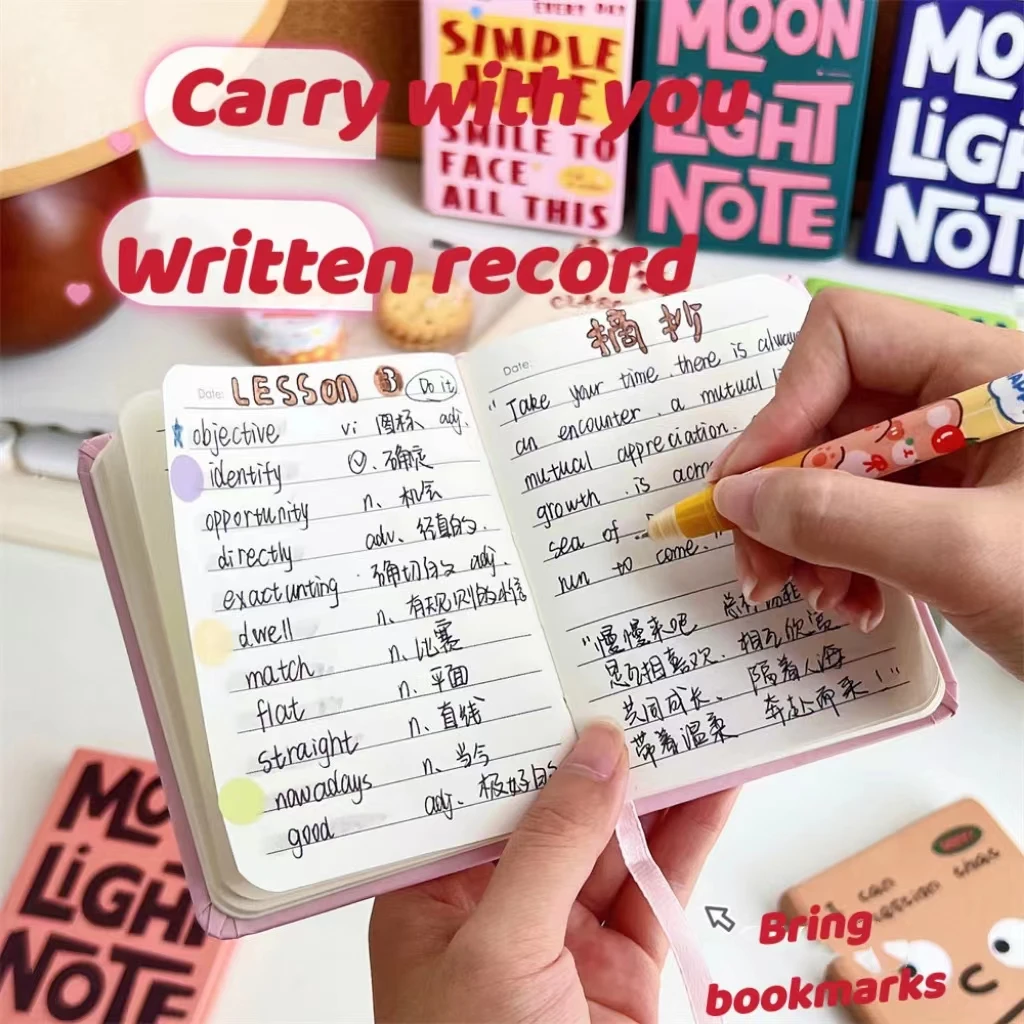 EVERY DAY
SIMPLE
SMILE TO
FACE
ALL THIS
MOON
LIGHT
NOTE
MO
LIGH
NOTE
Carry with you
Written record
Date:
LESSON 3
Do it
objective vi 图标 adj.
identify 确定
opportunity n. 机会
directly adv. 径直的
exacturting 确切的 adj.
dwell n. 有规则的
match n. 比赛
flat n. 平面
straight n. 直线
nawadays n. 当今
good adj. 极好的
Date:
摘抄
"Take your time. there is always
an encounter. a mutual
mutual appreciation.
growth. is
sea of
run to come.
"慢慢来吧
相互欣赏
共同成长、隔着人海
带着温柔 奔赴而来!"
MO
LIGH
NOTE
I can
Bring
bookmarks